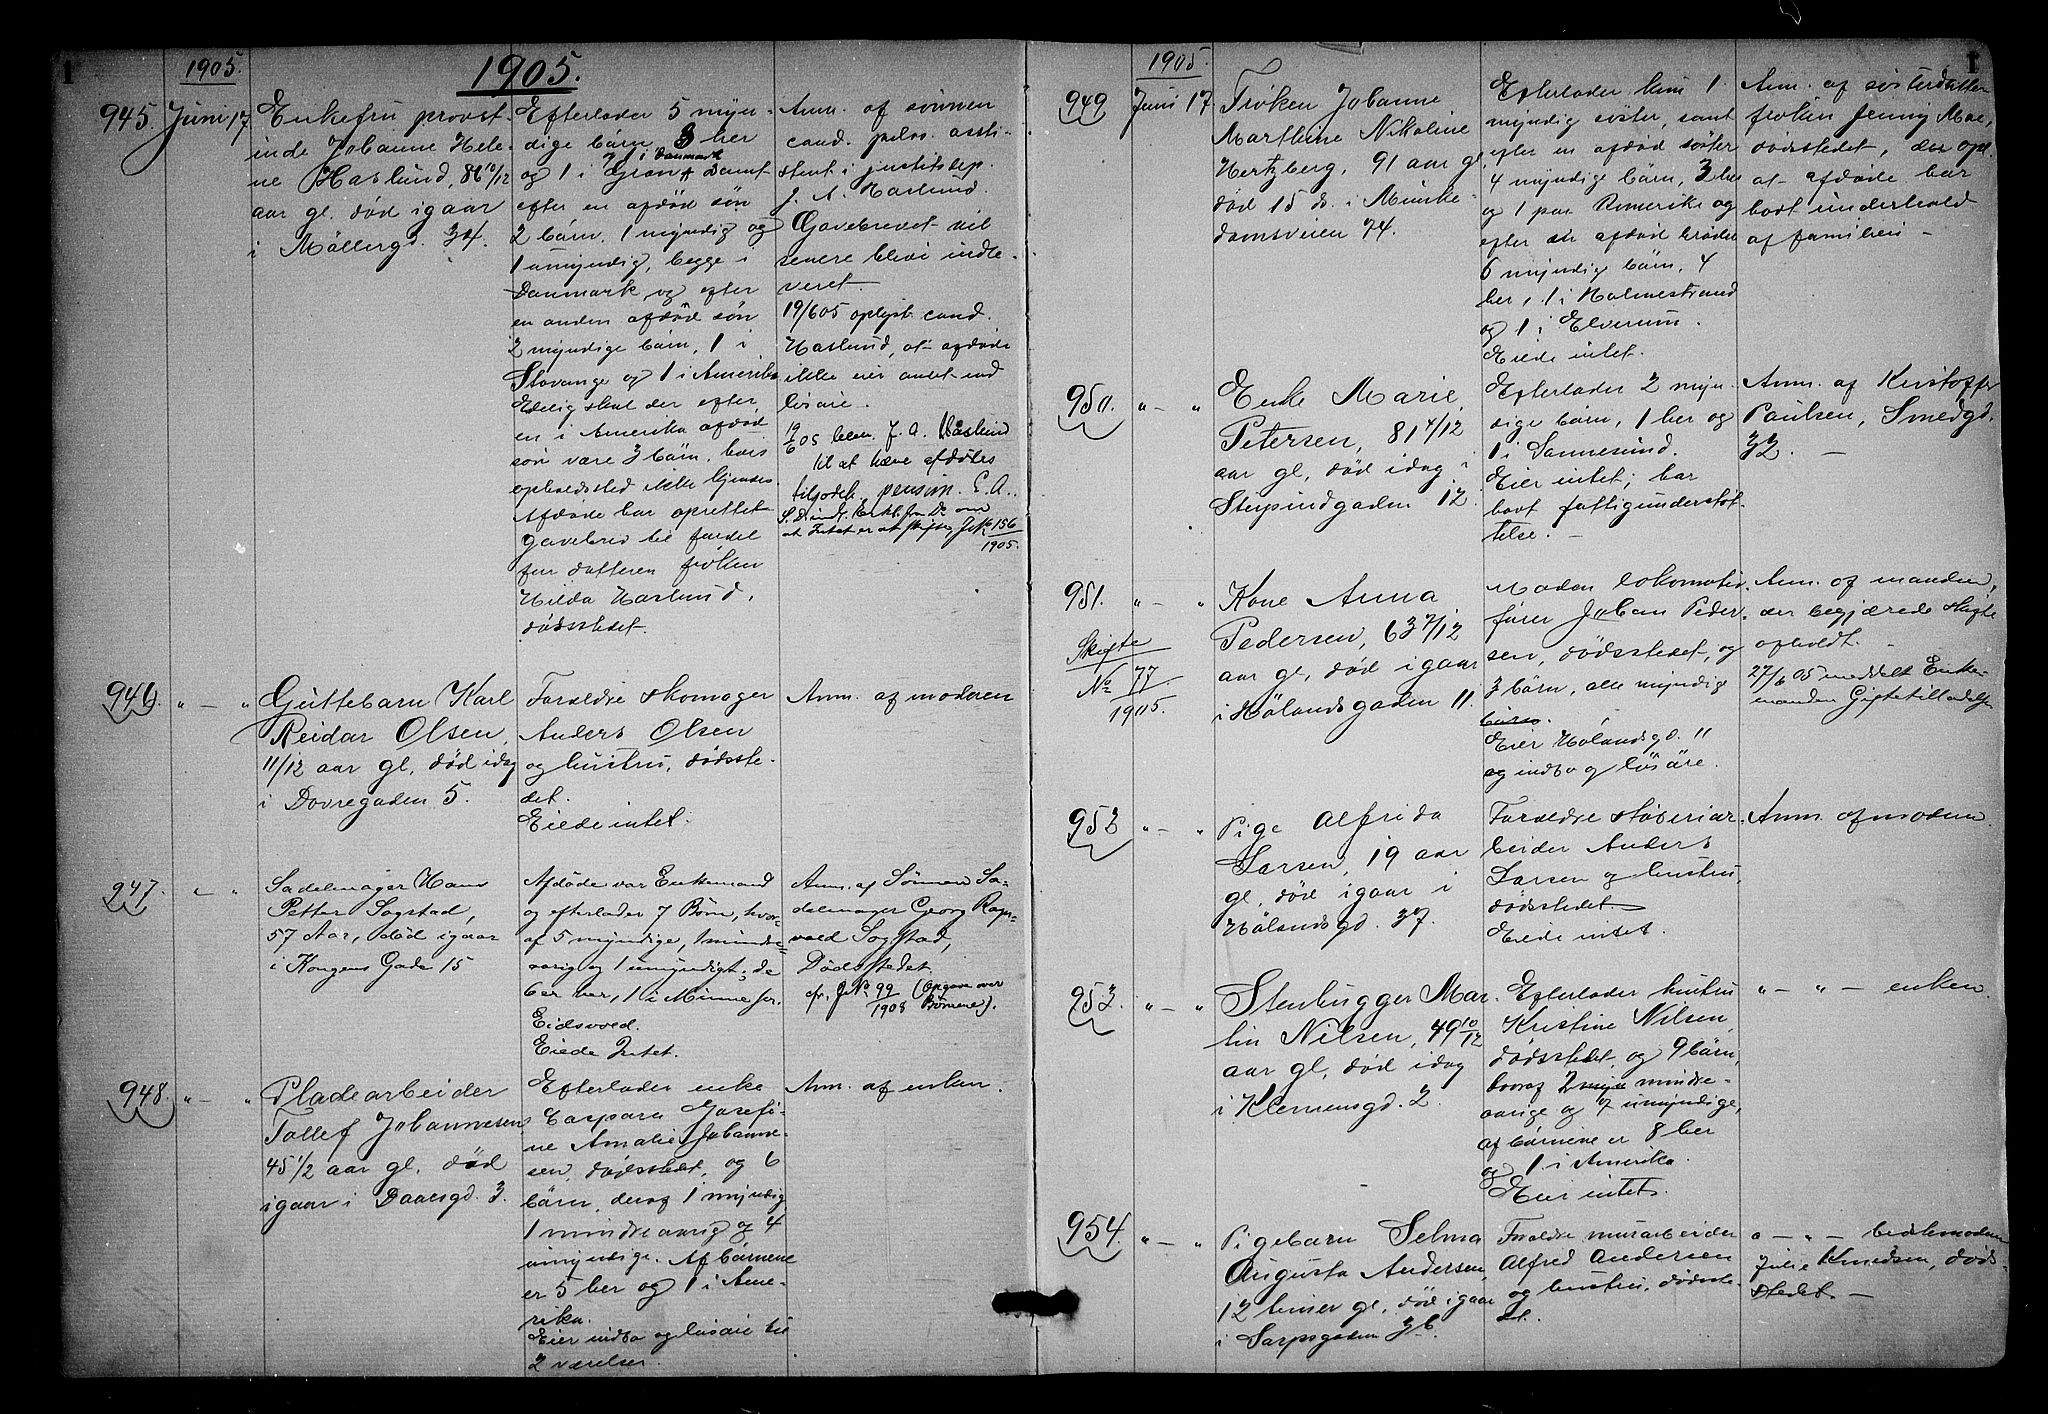 1
1905.
1905.
945.
Juni 17
Enkefru provst-
inde Johanne Hele-
ne Haslund, 86 10/12
aar gl. død igaar
i Møllergd. 34.
Efterlader 5 myn-
dige børn, 3 her
og 1 i Gran
1 i Danmark
efter en afdød søn
2 børn, 1 myndig og
1 umyndig, begge i
Danmark og efter
en anden afdød søn
2 myndige børn, 1 i
Stavanger og 1 i Amerika
Endelig skal der efter
en i Amerika afdød
søn være 3 børn, hvis
opholdssted ikke kjendes
Afdøde har oprettet
gavebrev til fordel
for datteren frøken
Hilda Haslund,
dødsstedet.
Anm. af sønnen
cand. philos. assi-
stent i justitsdep.
J. A. Haslund.
Gavebrevet vil
senere blive indle-
veret.
19/6 05 oplyst cand.
Haslund, at afdøde
ikke eier andet end
løsøre.
19/6 05 bem. J. A. Haslund
til at hæve afdødes
tilgodeh. pension. E. A.
at Intet er at skifte, J.№ 156/1905.
946.
" — "
Guttebarn Karl
Reidar Olsen,
11/12 aar gl., død idag
i Dovregaden 5.
Forældre skomager
Anders Olsen
og hustru, dødsste-
det.
Eiede intet.
Anm. af moderen
947.
" — "
Sadelmager Hans
Petter Sogstad,
57 Aar, død igaar
i Kongens Gade 15
Afdøde var Enkemand
og efterlader 7 Børn, hvor-
af 5 myndige, 1 mindre-
aarig og 1 umyndigt; de
6 er her, 1 i Minne st.
Eidsvold.
Eiede Intet.
Anm. af Sønnen Sa-
delmager Georg Rags-
vald Sogstad,
Dødsstedet.
cfr. J.№ 99/1908 (Opgave over
Børnene).
948.
" — "
Pladearbeider
Tollef Johannesen
45 1/2 aar gl., død
igaar i Daaesgd. 3.
Efterlader enke
Caspara Josefi-
ne Amalie Johanne-
sen, dødsstedet, og 6
børn, deraf 1 myndig
1 mindreaarig og 4
umyndige. Af børnene
er 5 her og 1 i Ame-
rika.
Eier indbo og løsøre til
2 værelser.
Anm. af enken.
1
1905.
949
Juni 17.
Frøken Johanne
Marthine Nikoline
Hertzberg, 91 aar gl
død 15 ds. i Munke-
damsveien 74.
Efterlader kun 1
myndig søster, samt
efter en afdød søster
4 myndige børn, 3 her
og 1 paa Romerike og
efter en afdød broder
6 myndige børn, 4
her, 1 i Holmestrand
og 1 i Elverum.
Eiede intet.
Anm. af søsterdatter
frøken Jenny Moe,
dødsstedet, der opl.
at afdøde har
havt underhold
af familien —
950.
" — "
Enke Marie
Petersen, 81 4/12
aar gl., død idag i
Stupindgaden 12
Efterlader 2 myn-
dige børn, 1 her og
1 i Sannesund.
Eier intet; har
havt fattigunderstøt-
telse. —
Anm. af Kristoffer
Paulsen, Smedgd.
32. —
951.
" — "
Skifte
№ 77
1905.
Kone Anna
Pedersen, 63 7/12
aar gl, død igaar
i Hølandsgaden 11.
Manden lokomotiv-
fører Johan Peder-
sen, dødsstedet, og
3 børn, alle myndige
Eier Hølandsgd. 11
og indbo og løsøre.
Anm. af manden,
der begjærede skifte
opholdt.
27/6 05 meddelt Enke-
manden Giftetilladelse
952
" — "
Pige Alfrida
Larsen, 19 aar
gl., død igaar i
Hølandsgd. 37.
Forældre støberiar-
beider Anders
Larsen og hustru,
dødsstedet.
Eiede intet.
Anm. af moderen.
953.
" — "
Stenhugger Mar-
tin Nilsen, 49 10/12
aar gl., død idag
i Klemensgd. 2.
Efterlader hustru
Kristine Nilsen,
dødsstedet, og 9 børn,
hvoraf 2 mindre-
aarige og 7 umyndige,
af børnene er 8 her
og 1 i Amerika.
Eier intet.
" — " — enken.
954.
" — "
Pigebarn Selma
Augusta Andersen,
12 timer gl., død igaar
i Sarpsgaden 3 b.
Forældre murarbeider
Alfred Andersen
og hustru, dødsste-
det.
" — " — bedstemoderen
Julie Knudsen, døds-
stedet. —